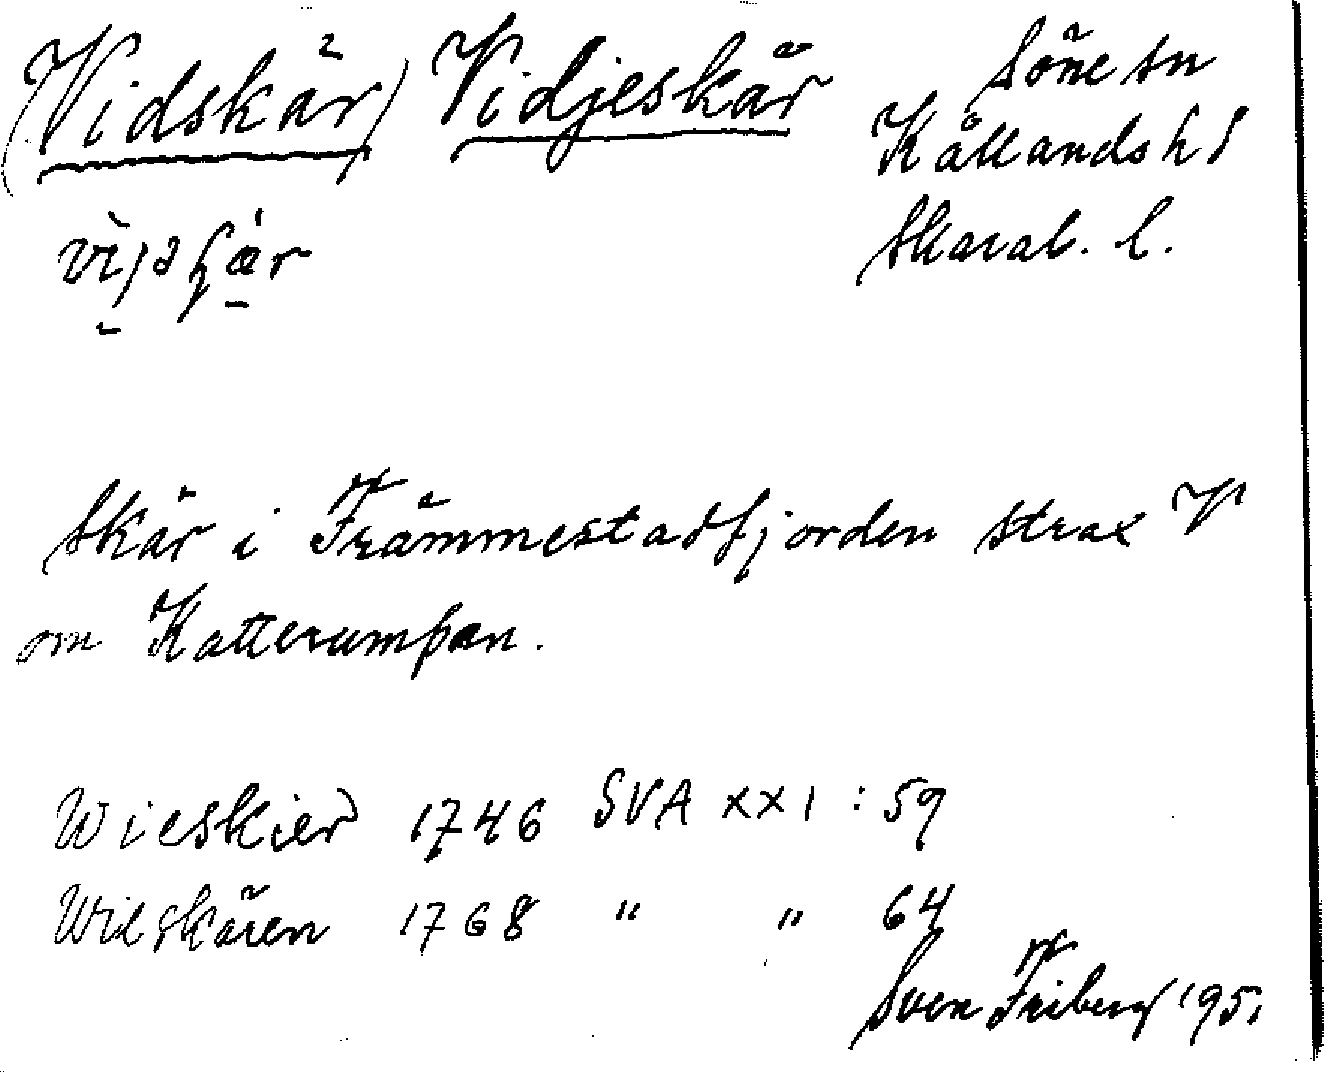 (Vidskär) Vidjeskär
Söne sn
Kållands hd
Skarab. l.
Skär i Främmestadfjorden strax V
om Katterumpan.
Wieskier 1746 SVA XXI : 59
Widskären 1768 " " 64
Sven Friberg 1951